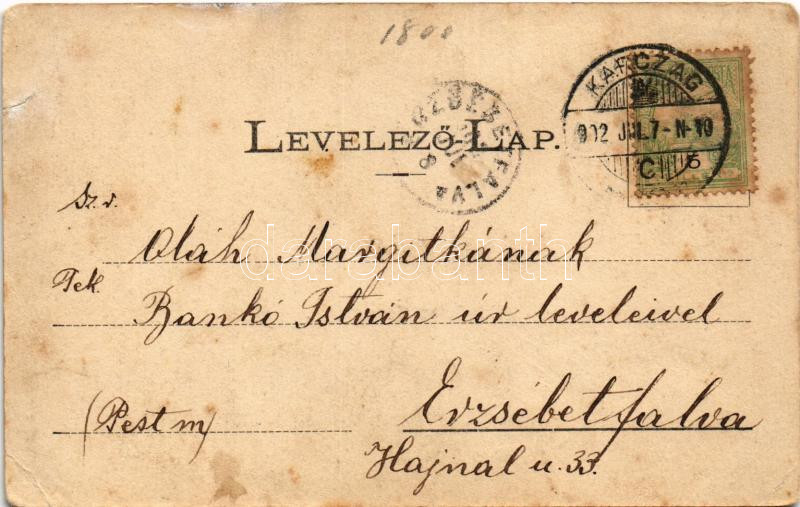 1800
KARCZAG
902 JUL.7-N-10
C
6
ERZSÉBETFALVA
LEVELEZŐ-LAP.
Sz. v.
Oláh Margitkának
Tek.
Bankó István úr leveleivel
(Pest m)
Erzsébetfalva
Hajnal u. 33.
darabanth